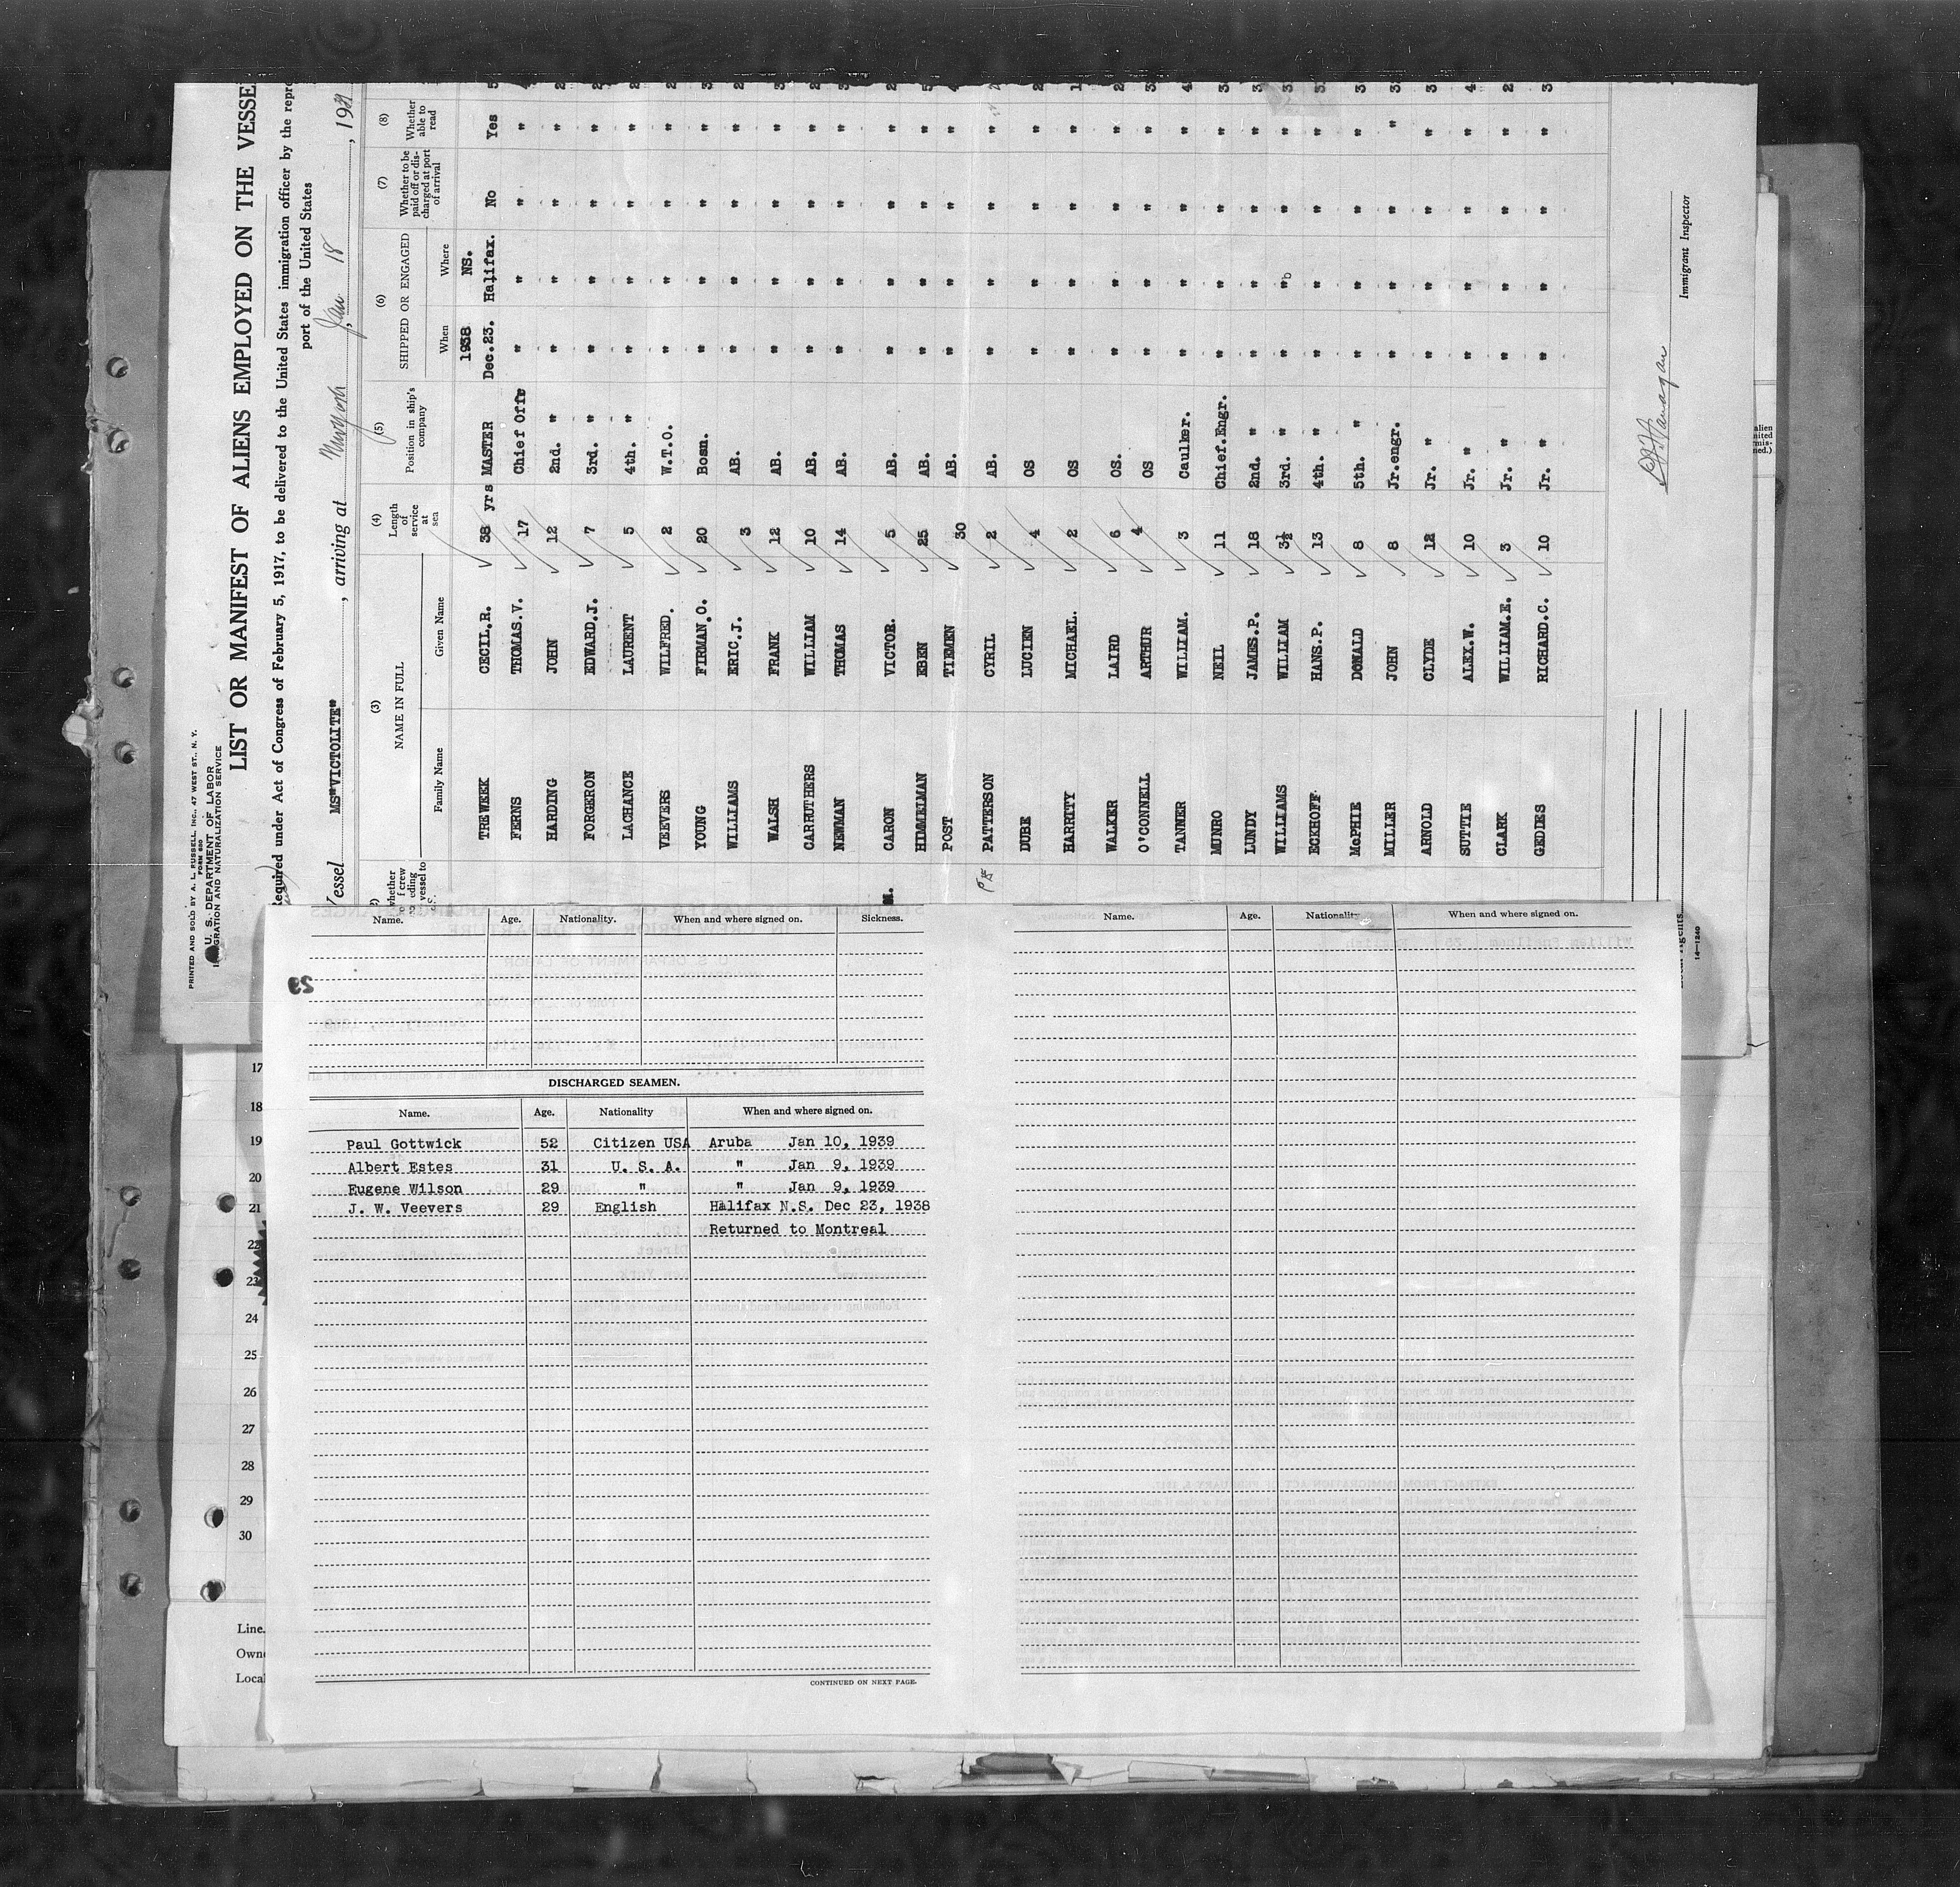 PRINTED AND SOLD BY A. L. RUSSELL, Inc., 47 WEST ST., N. Y.
FORM 680
U. S. DEPARTMENT OF LABOR
IMMIGRATION AND NATURALIZATION SERVICE
LIST OR MANIFEST OF ALIENS EMPLOYED ON THE VESSE
Required under Act of Congress of February 5, 1917, to be delivered to the United States immigration officer by the repre
port of the United States
Vessel MS"VICTOLITE", arriving at New York, Jan 18, 1939
(3) (4) (5) (6) (7) (8)
NAME IN FULL
Family Name Given Name
Length of service at sea
Position in ship's company
SHIPPED OR ENGAGED
When Where
Whether to be paid off or discharged at port of arrival
Whether able to read
1938 NS.
TREWEEK CECIL.R. 38 yrs MASTER Dec.23. Halifax. No Yes
FERNS THOMAS.V. 17 Chief Offr " " " "
HARDING JOHN 12 2nd. " " " " "
FORGERON EDWARD.J. 7 3rd. " " " " "
LACHANCE LAURENT 5 4th. " " " " "
VEEVERS WILFRED. 2 W.T.O. " " " "
YOUNG FIRMAN.O. 20 Bosn. " " " "
WILLIAMS ERIC.J. 3 AB. " " " "
WALSH FRANK 12 AB. " " " "
CARRUTHERS WILLIAM 10 AB. " " " "
NEWMAN THOMAS 14 AB. " " " "
CARON VICTOR. 5 AB. " " " "
HIMMELMAN EBEN 25 AB. " " " "
POST TIEMEN 30 AB. " " " "
PATTERSON CYRIL 2 AB. " " " "
DUBE LUCIEN 4 OS " " " "
HARRITY MICHAEL. 2 OS " " " "
WALKER LAIRD 6 OS. " " " "
O'CONNELL ARTHUR 4 OS " " " "
TANNER WILLIAM. 3 Caulker. " " " "
MUNRO NEIL 11 Chief.Engr. " " " "
LUNDY JAMES.P. 18 2nd. " " " " "
WILLIAMS WILLIAM 3½ 3rd. " " " " "
ECKHOFF HANS.P. 13 4th. " " " " "
McPHIE DONALD 8 5th. " " " " "
MILLER JOHN 8 Jr.engr. " " " "
ARNOLD CLYDE 12 Jr. " " " " "
SUTTIE ALEX.W. 10 Jr. " " " " "
CLARK WILLIAM.E. 3 Jr. " " " " "
GEDDES RICHARD.C. 10 Jr. " " " " "
Immigrant Inspector
14—1240
Name. Age. Nationality. When and where signed on. Sickness.
DISCHARGED SEAMEN.
Name. Age. Nationality When and where signed on.
Paul Gottwick 52 Citizen USA Aruba Jan 10, 1939
Albert Estes 31 U. S. A. " Jan 9, 1939
Eugene Wilson 29 " " Jan 9, 1939
J. W. Veevers 29 English Halifax N.S. Dec 23, 1938
Returned to Montreal
CONTINUED ON NEXT PAGE.
Name. Age. Nationality When and where signed on.
17
18
19
20
21
22
23
24
25
26
27
28
29
30
Line.
Owne
Local